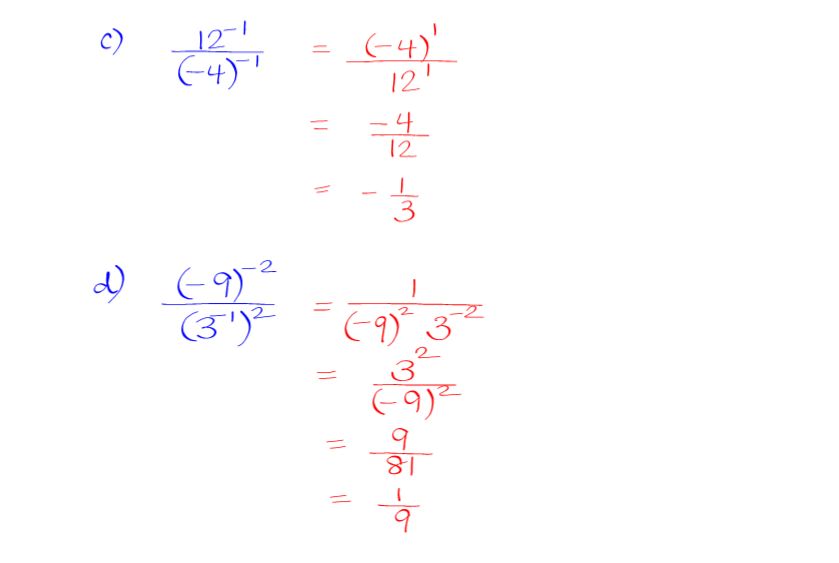 c) 12⁻¹/(-4)⁻¹ = (-4)¹/12¹
= -4/12
= -1/3
d) (-9)⁻²/(3⁻¹)² = 1/(-9)² 3⁻²
= 3²/(-9)²
= 9/81
= 1/9